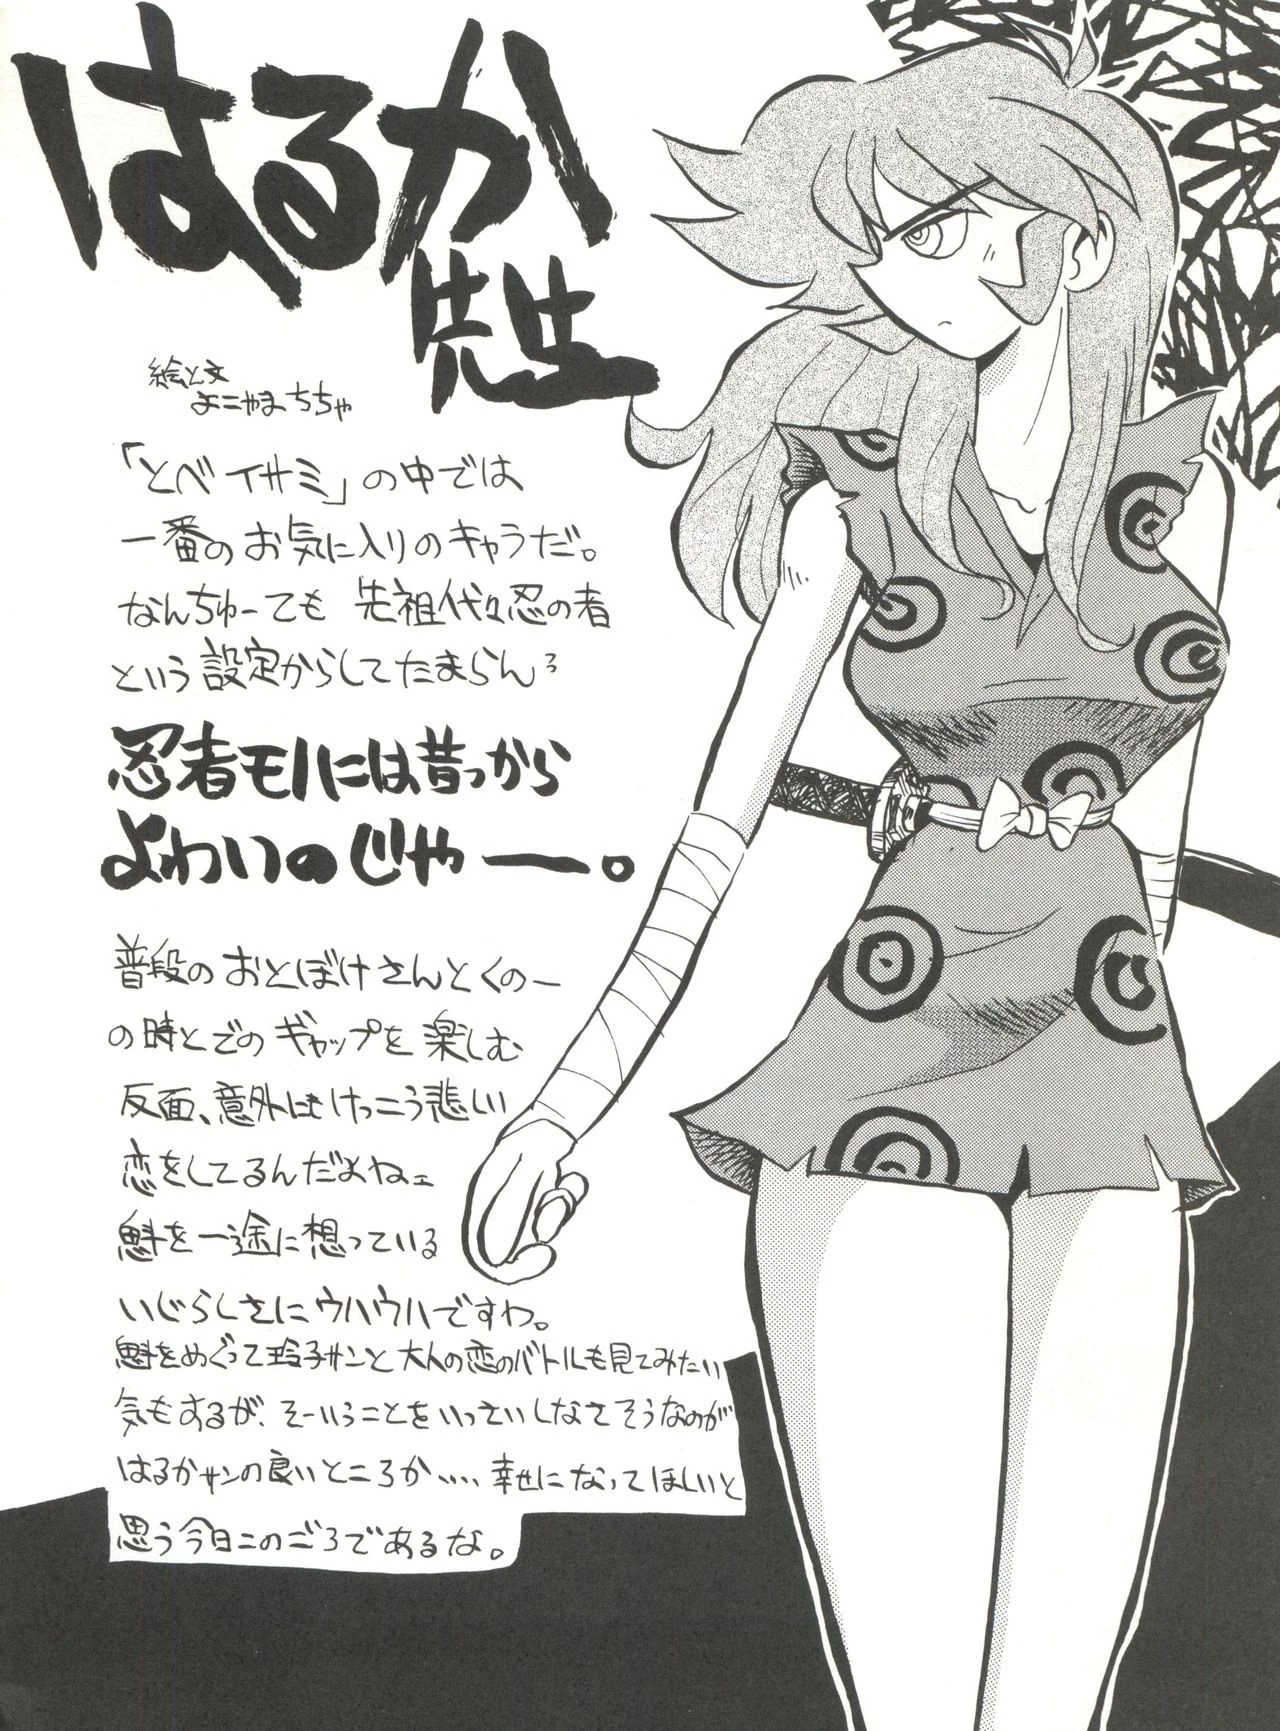 はるか
先生
絵と文
よこやまちちゃ
「とべイサミ」の中では
一番のお気に入りのキャラだ。
なんちゅーても先祖代々忍の者
という設定からしてたまらんろ
忍者モノには昔っから
よわいのじゃー。
普段のおとぼけさんとくの一
の時とでのギャップを楽しむ
反面、意外にもけっこう悲しい
恋をしてるんだよねェ
魁を一途に想っている
いじらしさにウハウハですわ。
魁をめぐって玲子サンと大人の恋のバトルも見てみたい
気もするが、そーいうことをいっさいしなさそうなのが
はるかサンの良いところか、、、、幸せになってほしいと
思う今日このごろであるな。